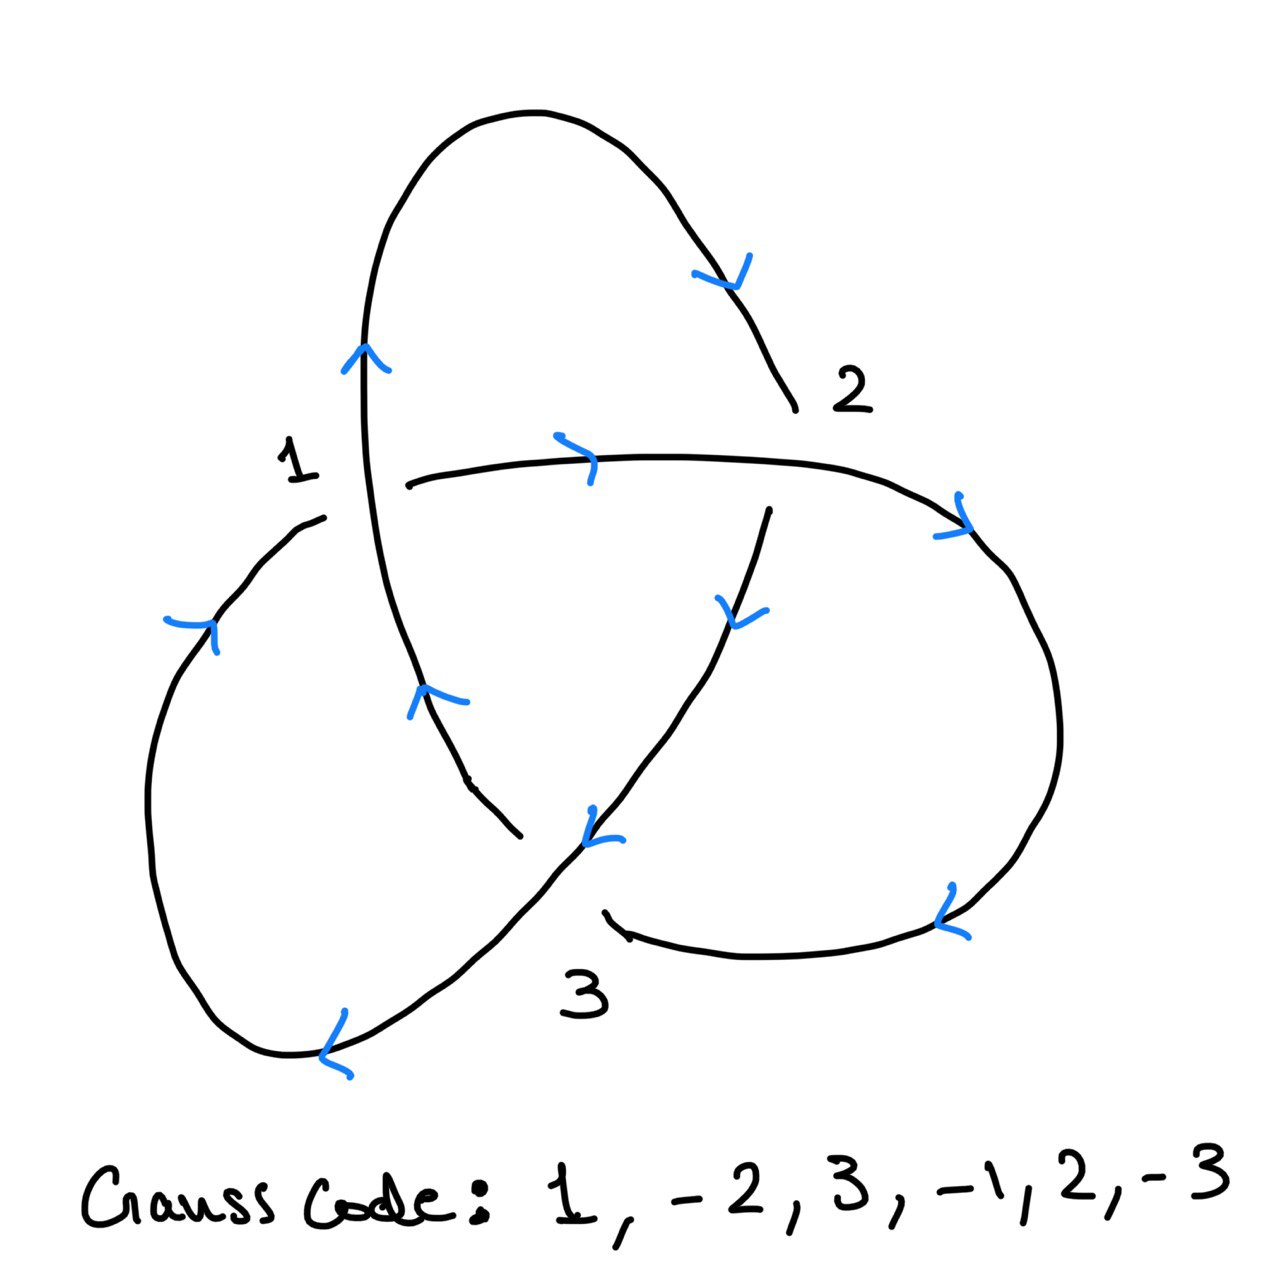 2
1
3
Gauss Code: 1, -2, 3, -1, 2, -3